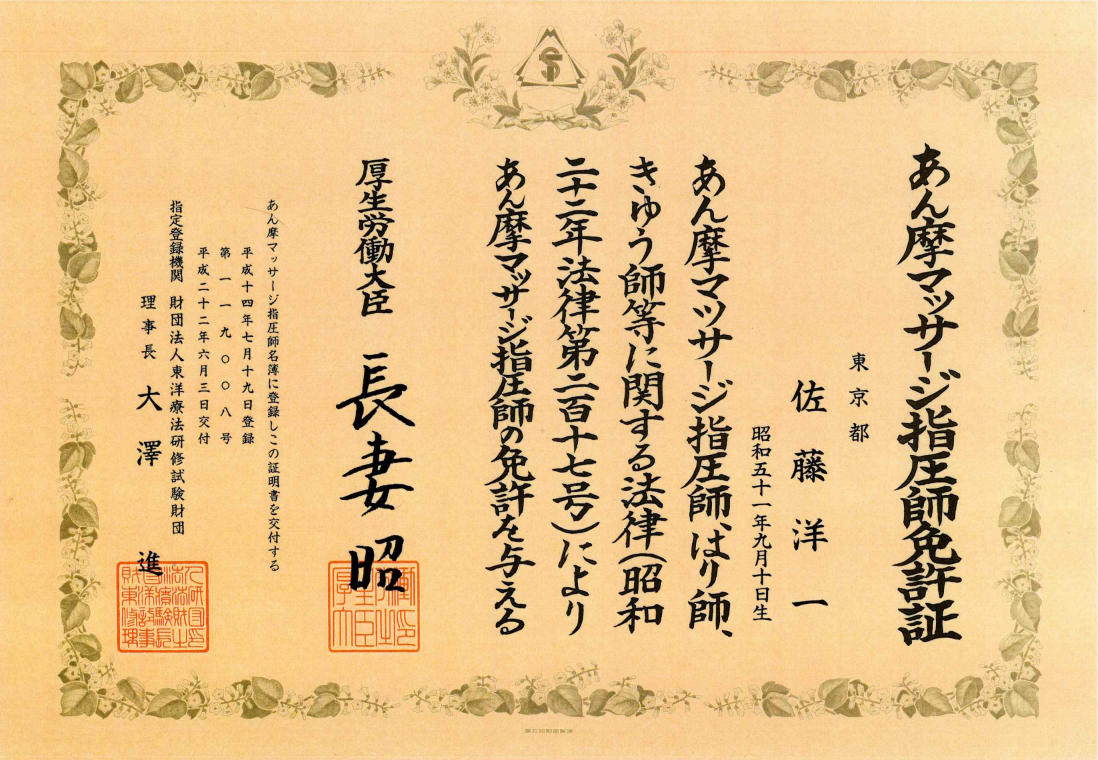 あん摩マッサージ指圧師免許証
東京都
佐藤洋一
昭和五十一年九月十日生
あん摩マツサージ指圧師、はり師、
きゆう師等に関する法律(昭和
二十二年法律第二百十七号)により
あん摩マッサージ指圧師の免許を与える
厚生労働大臣 長妻昭
あん摩マッサージ指圧師名簿に登録しこの証明書を交付する
平成十四年七月十九日登録
第一一九〇〇八号
平成二十二年六月三日交付
指定登録機関 財団法人東洋療法研修試験財団
理事長 大澤進